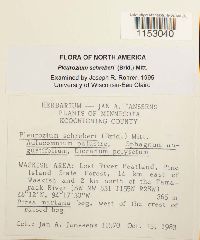 1153040
FLORA OF NORTH AMERICA
Pleurozium schreberi (Brid.) Mitt.
Examined by Joseph R. Rohrer, 1995
University of Wisconsin-Eau Claire
HERBARIUM — JAN A. JANSSENS
PLANTS OF MINNESOTA
KOOCHICHING COUNTY
Pleurozium schreberi (Brid.) Mitt.
Aulacomnium palustre, Sphagnum
Dicranum polysetum
WASKISH AREA: Lost River Peatland, Pine
Island State Forest, 14 km east of
Waskish and 2 km north of the Tama-
rack River
Picea mariana seg. west of the crest of
raised bog
Col.: Jan A. Janssens Oct. 13, 1983